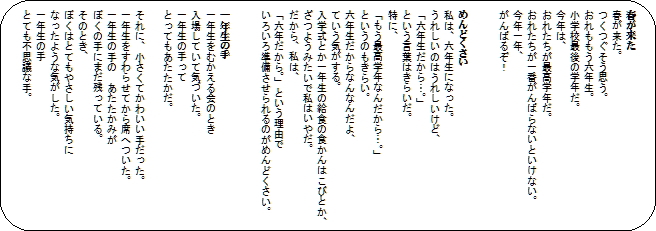 春が来た
春が来た。
つくづくそう思う。
おれももう六年生。
小学校最後の学年だ。
今年は、
おれたちが最高学年だ。
おれたちが一番がんばらないといけない。
今年一年、
がんばるぞ！
めんどくさい
私は、六年生になった。
うれしいのはうれしいけど、
「六年生だから…。」
という言葉はきらいだ。
特に、
「もう最高学年なんだから…。」
というのもきらい。
六年生だからなんなんだよ、
ていう気がする。
入学式とか一年生の給食の食かんはこびとか、
ざつようみたいで私はいやだ。
だから、私は、
「六年だから。」という理由で
いろいろ準備させられるのがめんどくさい。
一年生の手
一年生をむかえる会のとき
入場していて気づいた。
一年生の手って
とってもあたたかだ。
それに、小さくてかわいい手だった。
一年生をすわらせてから席へついた。
一年生の手の　あたたかみが
ぼくの手にまだ残っている。
そのとき、
ぼくはとてもやさしい気持ちに
なったような気がした。
一年生の手
とても不思議な手。